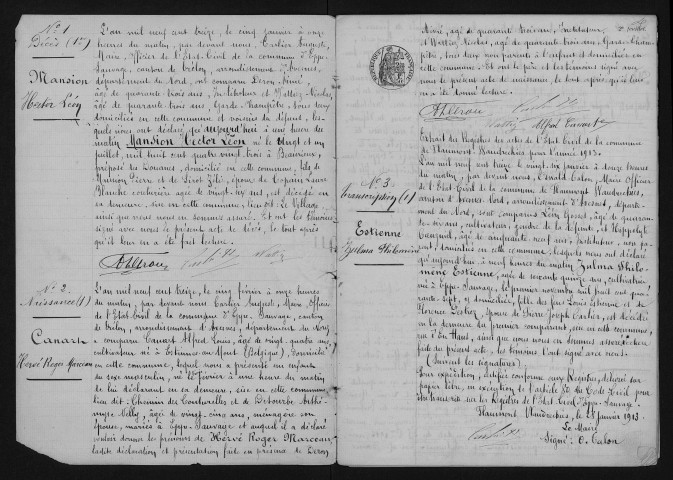 N° 1
Décès (1er)
Mansion
Hector Léon
L'an mil neuf cent treize, le cinq janvier à onze
heures du matin, par devant nous, Carlier Auguste,
Maire, Officier de l'Etat Civil de la commune d'Eppe-
Sauvage, canton de Trélon, arrondissement d'Avesnes,
département du Nord, ont comparu Leroy
âgé de quarante trois ans, Instituteur et Nicolas,
âgé de quarante trois ans, Garde-Champêtre, tous deux
domiciliés en cette commune et voisins du défunt, les-
quels nous ont déclaré que aujourd'hui à une heure du
matin, Mansion Hector Léon né le vingt et un
juillet, mil huit cent quatre vingt-trois à
préposé des Douanes, domicilié en cette commune, fils de
époux de
Blanche couturière âgée de vingt-six ans, est décédé en
sa demeure, sise en cette commune, lieu dit: Le Village
ainsi que nous nous en sommes assuré. Et ont les témoins
signé avec nous le présent acte de décès, le tout après
qu'il leur en a été fait lecture.
N° 2.
Naissance (1)
Canart
Hervé Roger Marceau
L'an mil neuf cent treize, le cinq février à onze heures
du matin, par devant nous Carlier Auguste, Maire, Officier
de l'Etat Civil de la commune d'Eppe-Sauvage, canton
de Trélon, arrondissement d'Avesnes, département du Nord
a comparu Canart Alfred Louis, âgé de vingt quatre ans
cultivateur né à Estinne-au-Mont (Belgique), domicilié
en cette commune, lequel nous a présenté un enfant
du sexe masculin, né le février à une heure du matin
de lui déclarant en sa demeure, sise en cette commune,
lieu dit: Chemin des et de
Nelly, âgée de vingt-cinq ans, ménagère son
épouse, mariés à Eppe-Sauvage et auquel il a déclaré
vouloir donner les prénoms de Hervé Roger Marceau,
la dite déclaration et présentation faite en présence de Leroy
âgé de quarante trois ans, Instituteur
et Nicolas, âgé de quarante trois ans, Garde-Cham-
pêtre, tous deux domiciliés en
cette commune. Et ont le père et les témoins signé avec
nous le présent acte de naissance, le tout après qu'il leur
en a été donné lecture.
Alfred Canart
N° 3
transcription (1)
Estienne
Zulma Philomène
Extrait du Registre des actes de l'Etat Civil de la commune
de Flaumont-Waudrechies pour l'année 1913.
L'an mil neuf cent treize le vingt-six janvier à douze heures
du matin, par devant nous, Oswald Calon, Maire, Officier
de l'Etat Civil de la commune de Flaumont-Waudrechies,
canton d'Avesnes-Nord, arrondissement d'Avesnes, département
du Nord, sont comparus Léon âgé de quaran-
te-six ans, cultivateur, gendre de la défunte, et Hippolyte
âgé de quarante neuf ans, Instituteur, non pa-
rent, domiciliés en cette commune, lesquels nous ont déclaré
qu'aujourd'hui, à neuf heures du matin Zulma Philo-
mène Estienne, âgée de soixante quinze ans, cultivatrice,
née à Eppe-Sauvage, le premier novembre mil huit cent
trente-sept, y domiciliée, fille des feus Louis Estienne et de
Florence épouse de Pierre Joseph Carlier, est décédée
en la demeure du premier comparant, sise en cette commune,
rue d'En Haut, ainsi que nous nous en sommes assuré. Lecture
faite du présent acte, les témoins l'ont signé avec nous.
(Suivent les signatures)
Pour expédition, certifiée conforme aux Registres, délivrée sur
papier libre, en exécution de l'article du Code Civil pour
être transcrite sur les Registres de l'Etat Civil d'Eppe-Sauvage.
Flaumont-Waudrechies, le janvier 1913.
Le Maire,
Signé: O. Calon